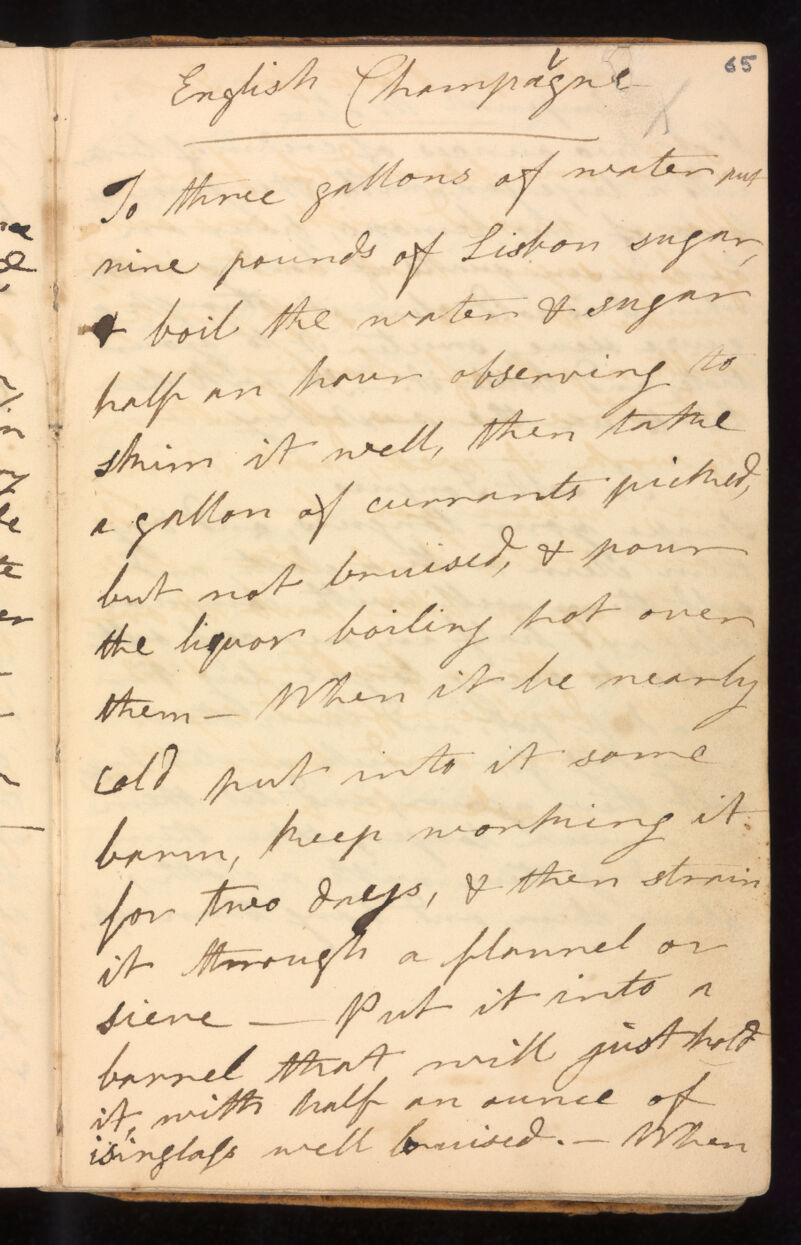 65
English Champagne
To three gallons of water put
nine pounds of Lisbon sugar,
& boil the water & sugar
half an hour observing to
skim it well, then take
a gallon of currants picked,
but not bruised, & pour
the liquor boiling hot over
them — When it be nearly
cold put into it some
barm, keep working it
for two days, & then strain
it through a flannel or
sieve — Put it into a
barrel that will just hold
it, with half an ounce of
isinglass well bruised. — When